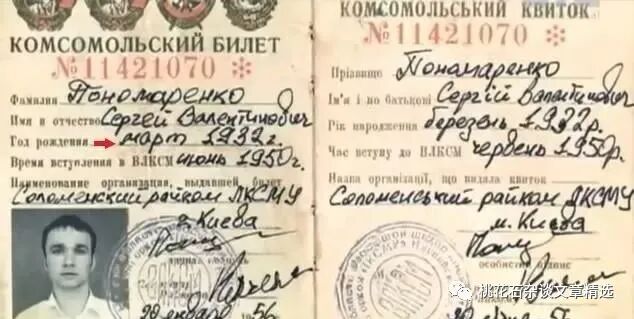 КОМСОМОЛЬСКИЙ БИЛЕТ
№11421070 *
Фамилия Пономаренко
Имя и отчество Сергей Валентинович
Год рождения март 1932г.
Время вступления в ВЛКСМ июнь 1950г.
Наименование организации, выдавшей билет
Соломенский райком ЛКСМУ
г. Киева
КОМСОМОЛЬСЬКИЙ КВИТОК
№11421070 *
Прізвище Пономаренко
Ім'я і по батькові Сергій Валентинович
Рік народження березень 1932р.
Час вступу до ВЛКСМ червень 1950р.
Назва організації, що видала квиток
Соломенський райком ЛКСМУ
м. Києва
особистий підпис
桃花石杂谈文章精选